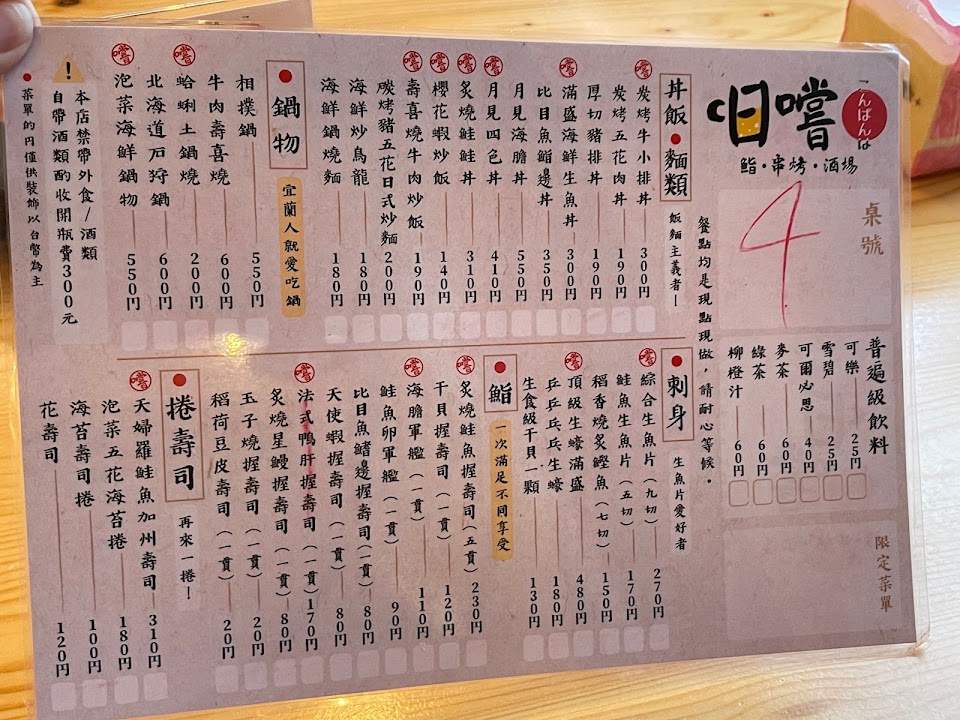 日嚐
こんばんは
鮨・串烤・酒場
桌號
4
普遍級飲料
可樂 25円
雪碧 25円
可爾必思 40円
麥茶 60円
綠茶 60円
柳橙汁 60円
限定菜單
餐點均是現點現做，請耐心等候。
丼飯•麵類
飯麵主義者—
嚐 炭烤牛小排丼 300円
炭烤五花肉丼 190円
厚切豬排丼 190円
嚐 滿盛海鮮生魚丼 300円
比目魚鰭邊丼 350円
月見海膽丼 550円
嚐 月見四色丼 410円
嚐 炙燒鮭鮭丼 310円
嚐 櫻花蝦炒飯 140円
嚐 壽喜燒牛肉炒飯 190円
碳烤豬五花日式炒麵 200円
海鮮炒烏龍 180円
海鮮鍋燒麵 180円
鍋物
宜蘭人就愛吃鍋
相撲鍋 550円
牛肉壽喜燒 600円
嚐 蛤蜊土鍋燒 200円
北海道石狩鍋 600円
嚐 泡菜海鮮鍋物 550円
!
本店禁帶外食/酒類
自帶酒類酌收開瓶費300元
•菜單的円僅供裝飾以台幣為主
刺身
生魚片愛好者
嚐 綜合生魚片（九切） 270円
鮭魚生魚片（五切） 170円
稻香燒炙鰹魚（七切） 150円
嚐 頂級生蠔滿盛 480円
乒乒乓乓生蠔 180円
生食級干貝一顆 130円
鮨
一次滿足不同享受
嚐 炙燒鮭魚握壽司（五貫） 230円
干貝握壽司（一貫） 120円
嚐 海膽軍艦（一貫） 110円
鮭魚卵軍艦（一貫） 90円
比目魚鰭邊握壽司（一貫） 80円
天使蝦握壽司（一貫） 80円
嚐 法式鴨肝握壽司（一貫） 170円
炙燒星鰻握壽司（一貫） 80円
玉子燒握壽司（一貫） 20円
稻荷豆皮壽司（一貫） 20円
捲壽司
再來一捲！
嚐 天婦羅鮭魚加州壽司 310円
泡菜五花海苔捲 180円
海苔壽司捲 100円
花壽司 120円